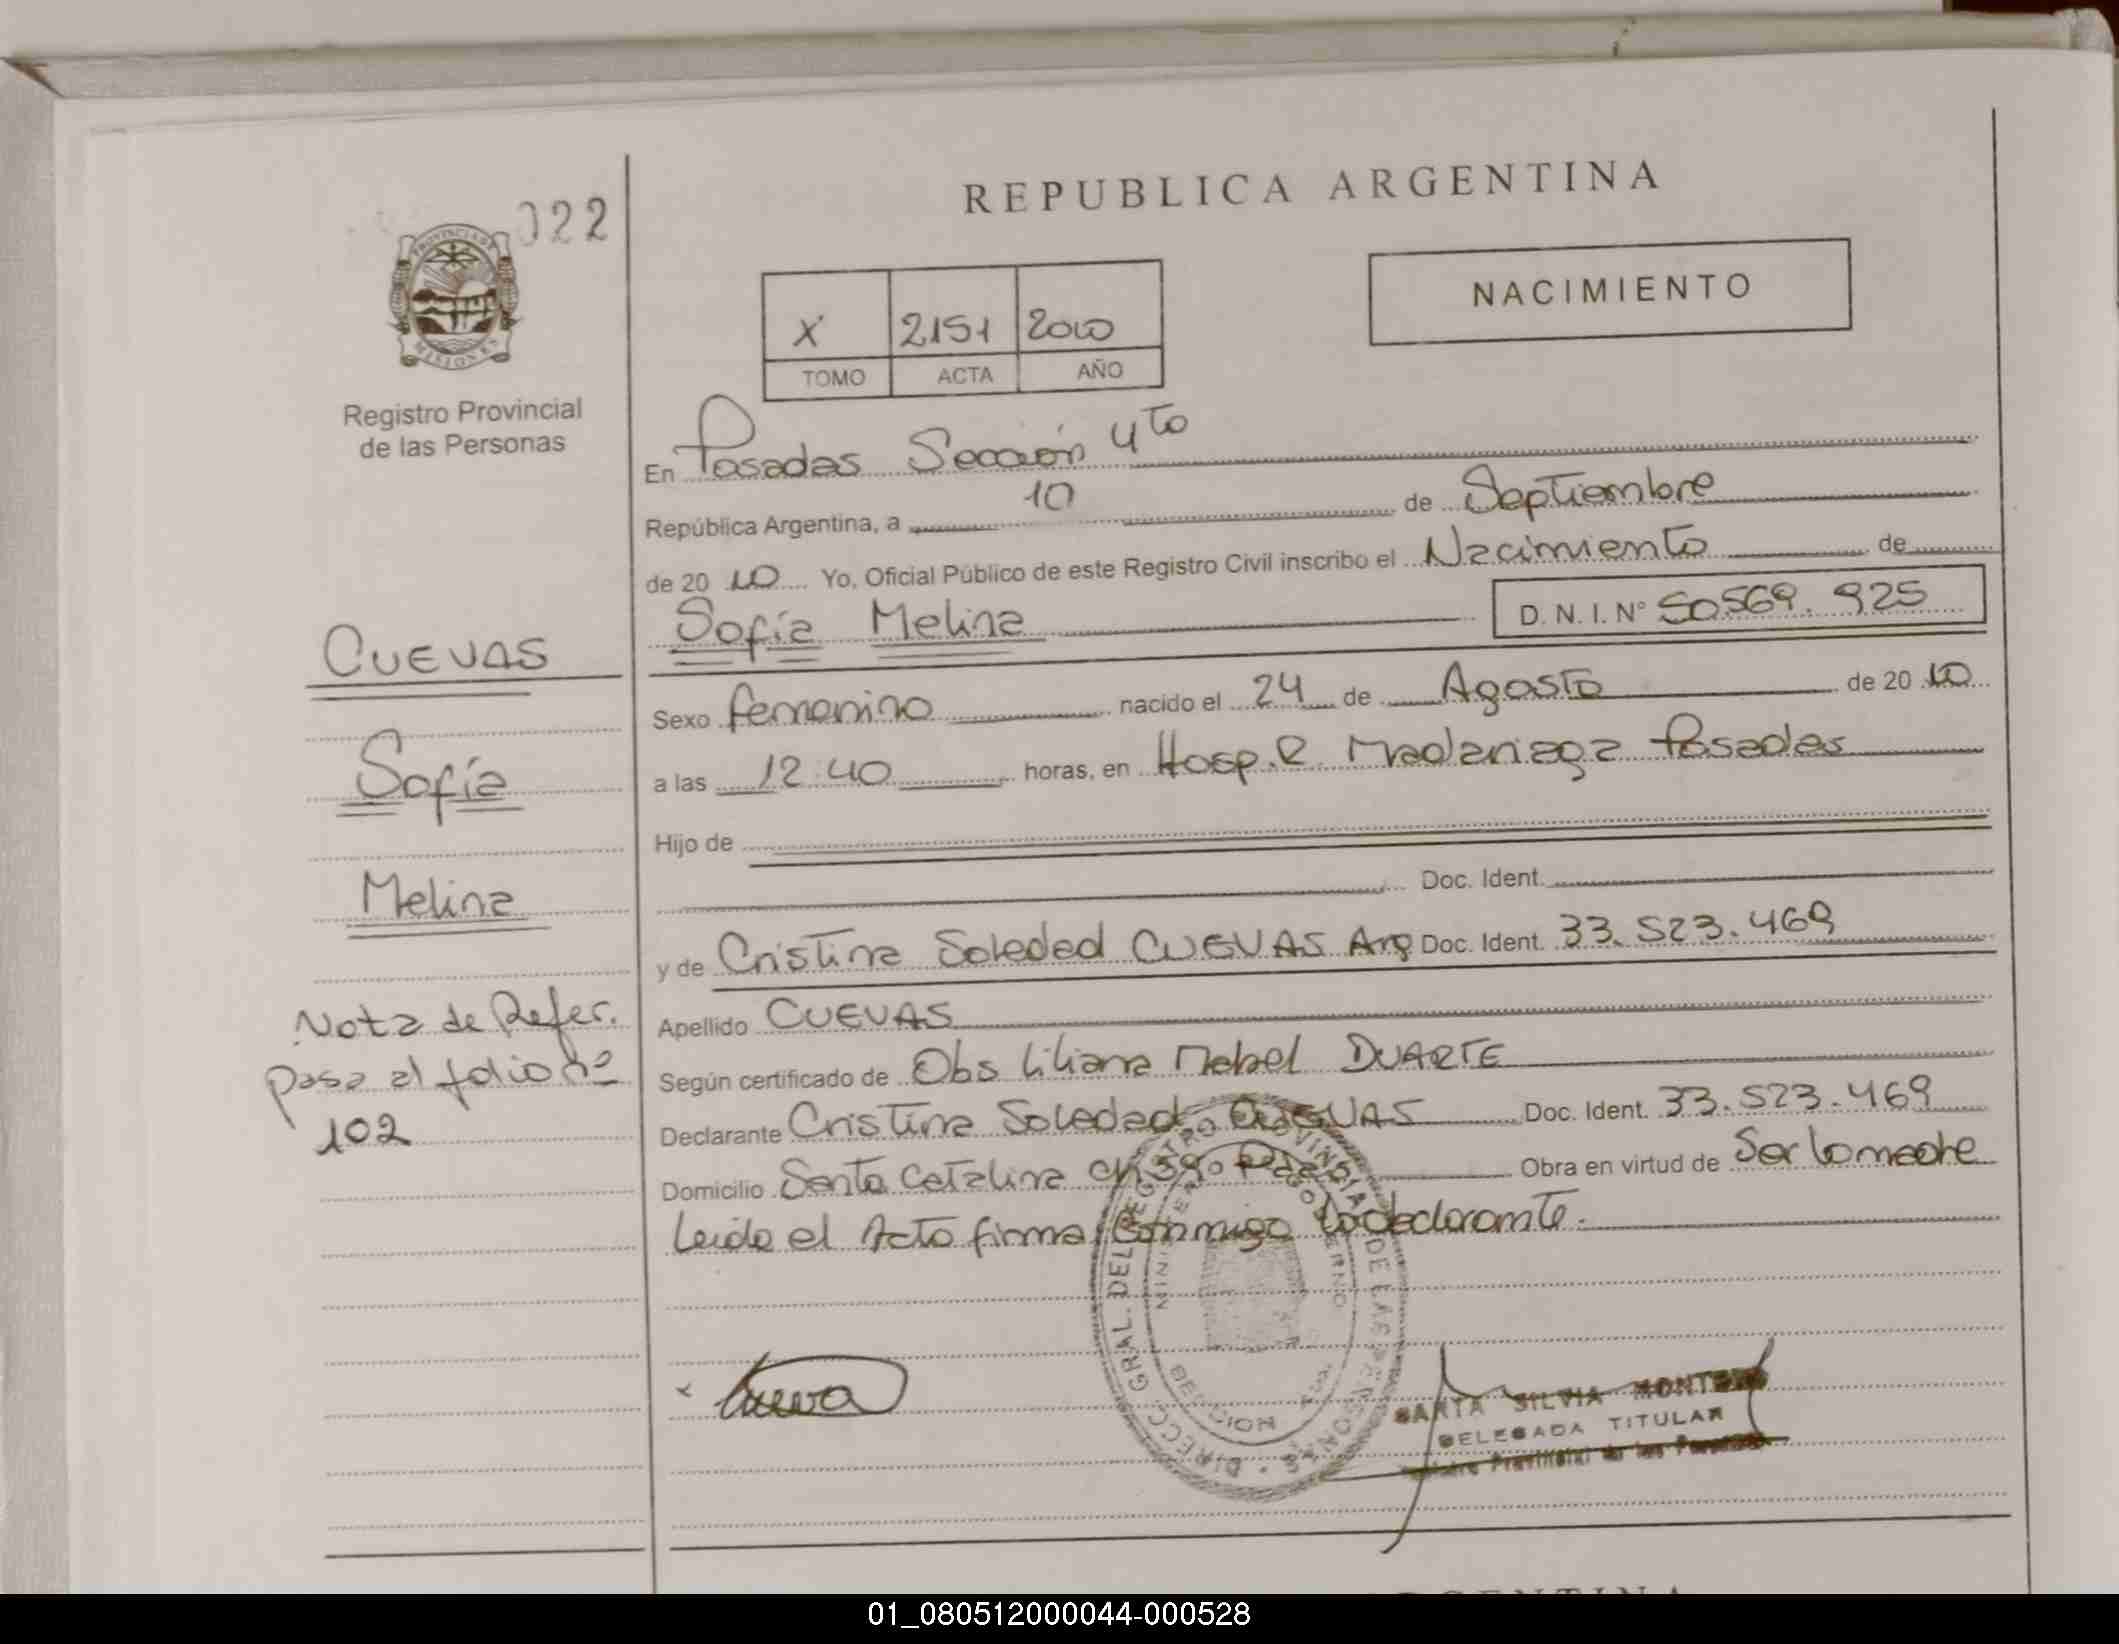 022
REPUBLICA ARGENTINA
NACIMIENTO
X 2151 2010
TOMO ACTA AÑO
Registro Provincial
de las Personas
En Posadas Sección 4to
República Argentina, a 10 de Septiembre
de 2010 Yo, Oficial Público de este Registro Civil inscribo el Nacimiento de
Sofía Melina D.N.I. N° 50.569.925
CUEVAS
Sexo femenino nacido el 24 de Agosto de 2010
Sofía
a las 12:40 horas, en Hosp. R. Madariaga Posadas
Hijo de
Doc. Ident.
Melina
y de Cristina Soledad CUEVAS Arg Doc. Ident. 33.523.469
Nota de Refer.
pasa al folio nº
102
Apellido CUEVAS
Según certificado de Obs Liliana Mabel DUARTE
Declarante Cristina Soledad CUEVAS Doc. Ident. 33.523.469
Domicilio Santa Catalina Obra en virtud de Ser la madre
Leida el Acta firma conmigo la declarante.
DIRECC. GRAL. DEL REGISTRO PROVINCIAL DE LAS PERSONAS
x Cueva
SILVIA
DELEGADA TITULAR
Provincial de las
ARGENTINA
01_080512000044-000528